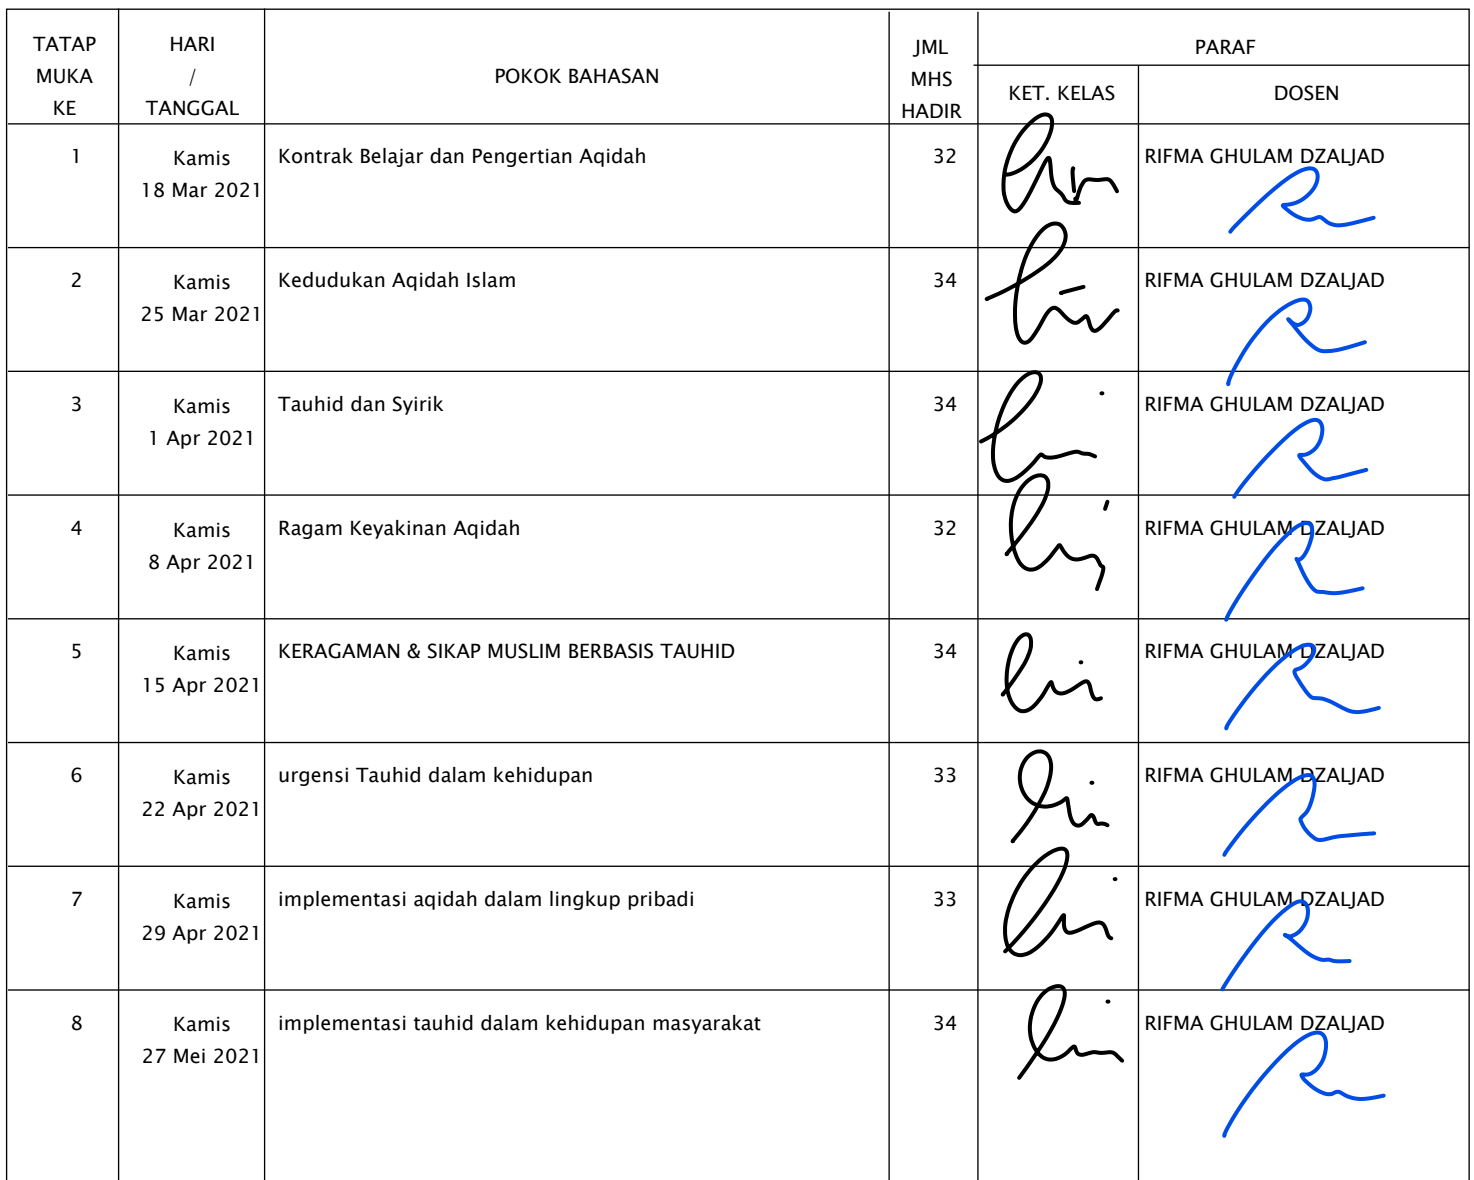 TATAP MUKA KE
HARI / TANGGAL
POKOK BAHASAN
JML MHS HADIR
PARAF
KET. KELAS
DOSEN
1
Kamis
18 Mar 2021
Kontrak Belajar dan Pengertian Aqidah
32
RIFMA GHULAM DZALJAD
2
Kamis
25 Mar 2021
Kedudukan Aqidah Islam
34
RIFMA GHULAM DZALJAD
3
Kamis
1 Apr 2021
Tauhid dan Syirik
34
RIFMA GHULAM DZALJAD
4
Kamis
8 Apr 2021
Ragam Keyakinan Aqidah
32
RIFMA GHULAM DZALJAD
5
Kamis
15 Apr 2021
KERAGAMAN & SIKAP MUSLIM BERBASIS TAUHID
34
RIFMA GHULAM DZALJAD
6
Kamis
22 Apr 2021
urgensi Tauhid dalam kehidupan
33
RIFMA GHULAM DZALJAD
7
Kamis
29 Apr 2021
implementasi aqidah dalam lingkup pribadi
33
RIFMA GHULAM DZALJAD
8
Kamis
27 Mei 2021
implementasi tauhid dalam kehidupan masyarakat
34
RIFMA GHULAM DZALJAD